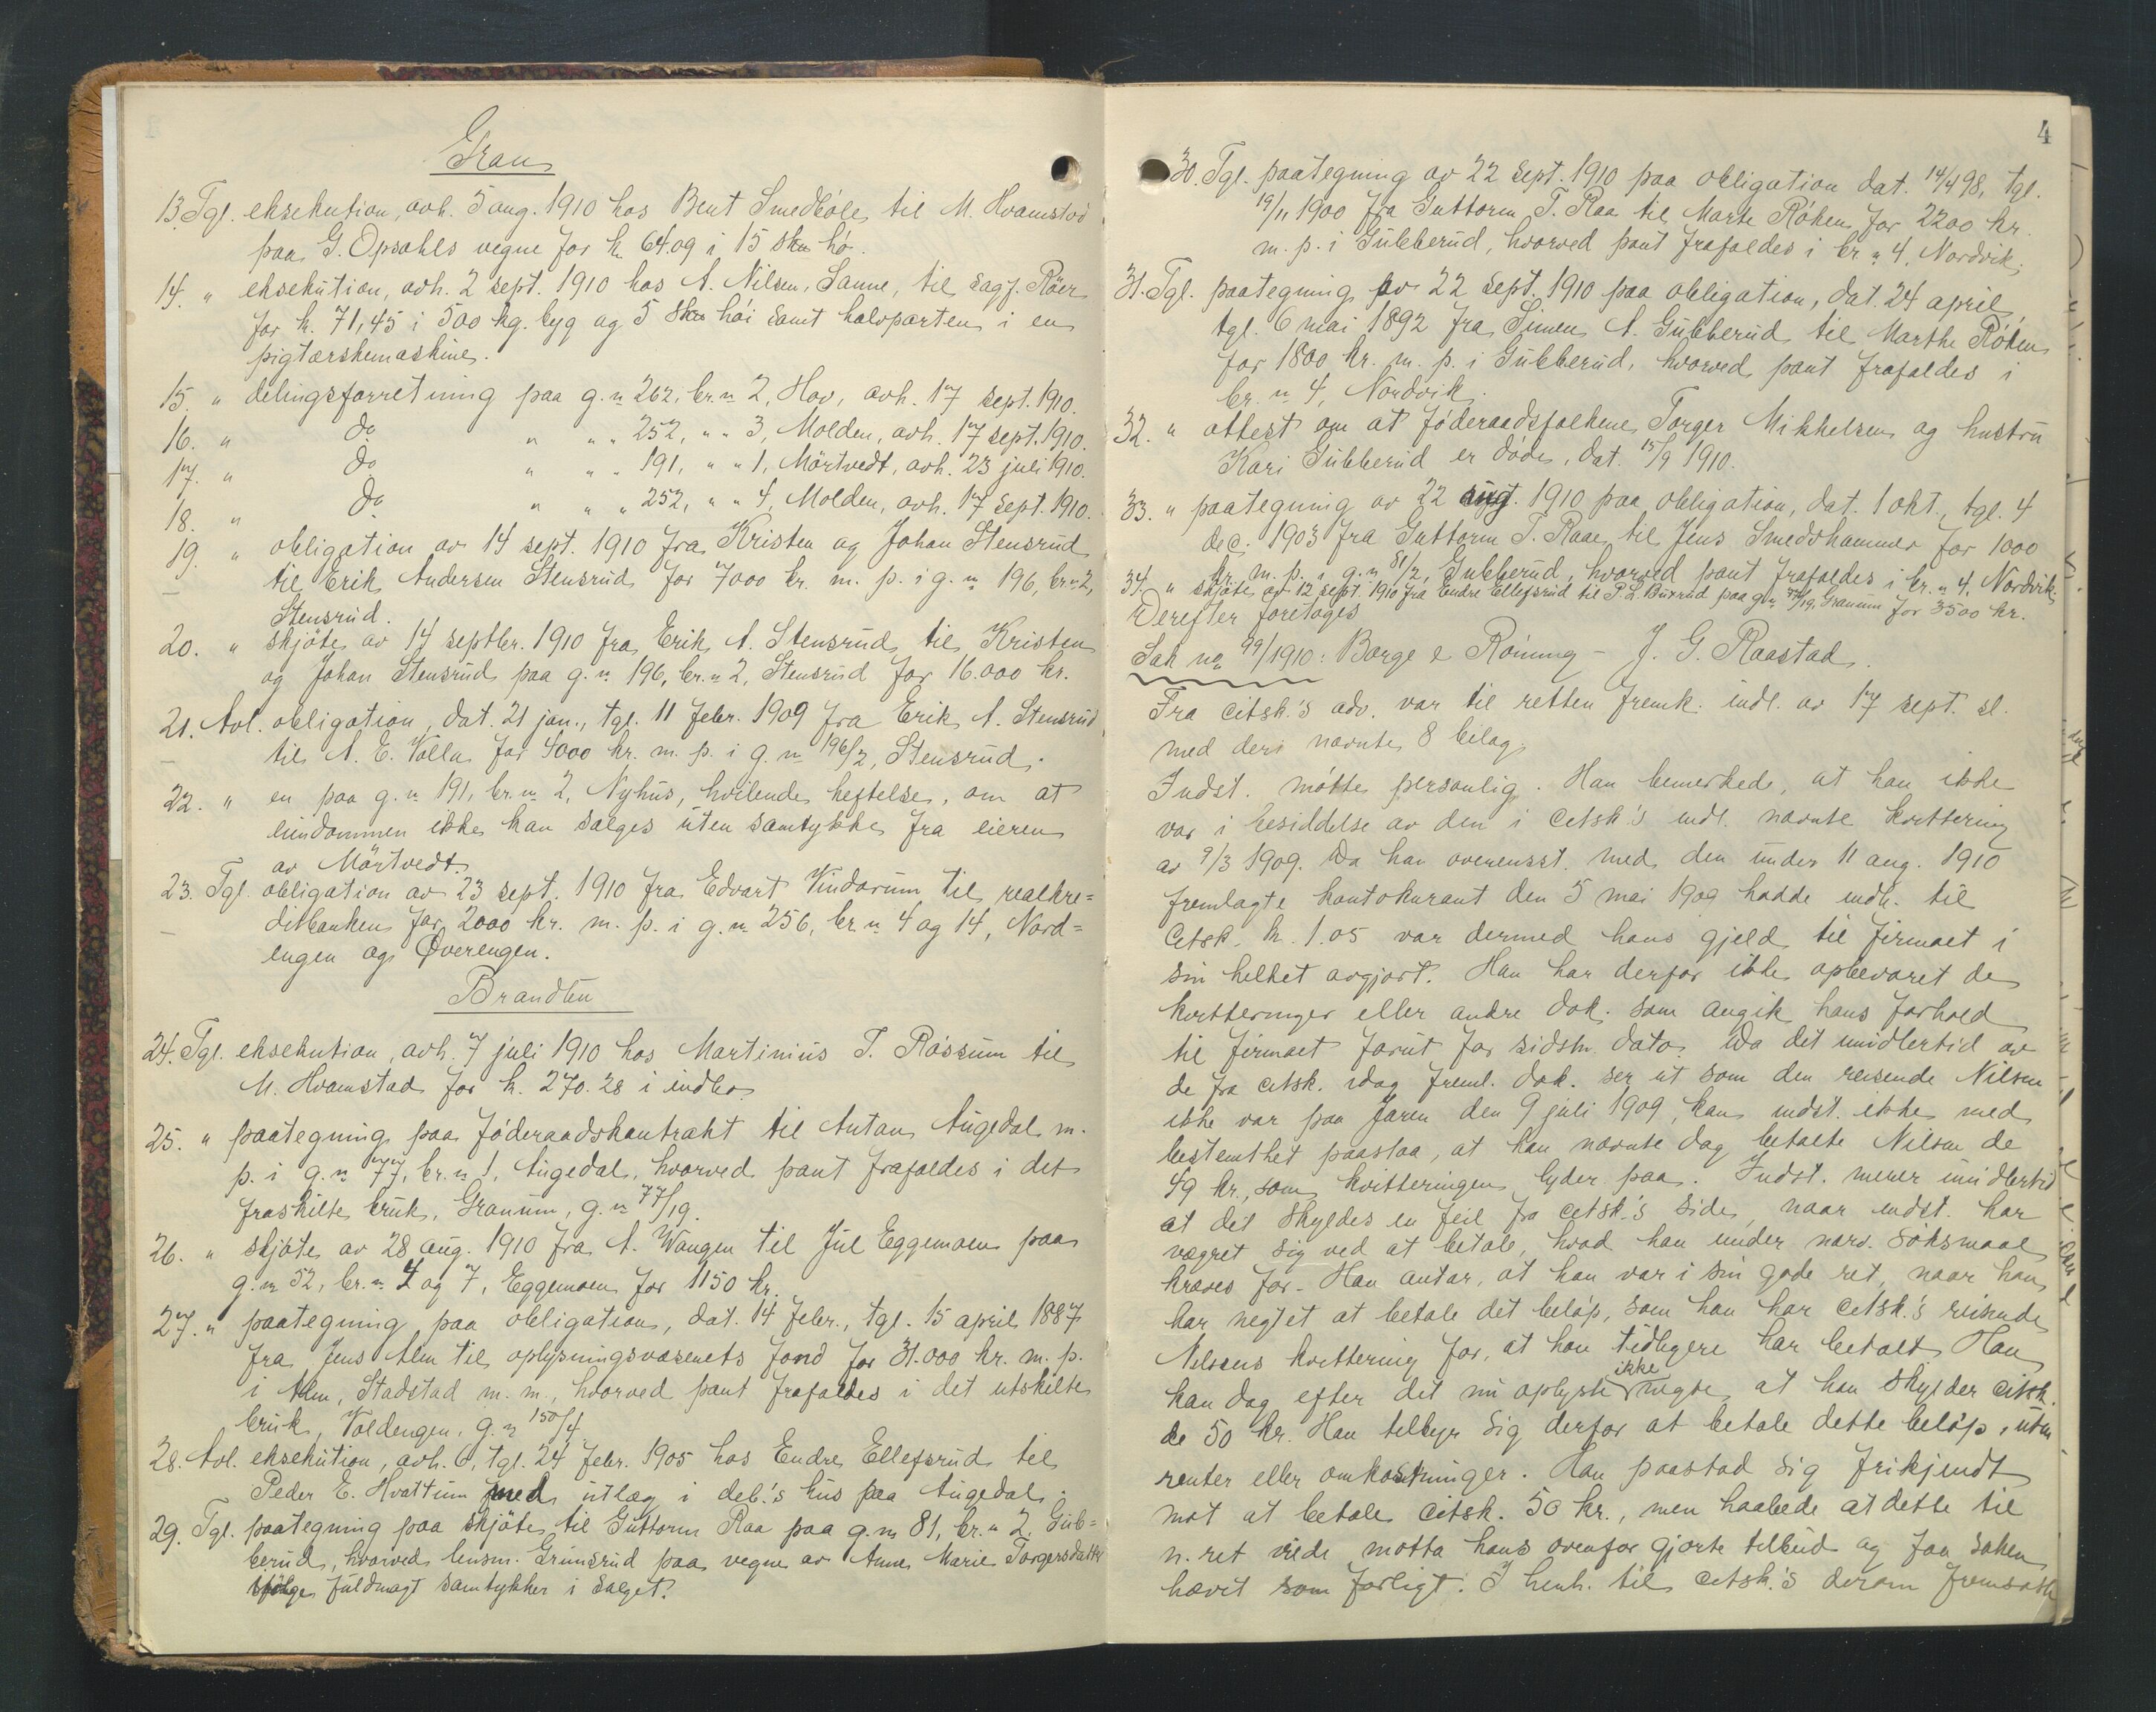 Gran
13. Tgl. eksekution, avh. 5 aug. 1910 hos Bent Smedböle til M. Hvamstad
paa G. Opsahls vegne for kr. 64.09 i 15 skm hö.
14. " eksekution, avh. 2 sept. 1910 hos A. Nilsen, Sanne, til sagf. Röer
for kr. 71,45 i 500 kg. byg og 5 skm höi samt halvparten i en
pigtærskemaskine.
15. " delingsforretning paa g. n 262, br. n 2, Hov, avh. 17 sept. 1910.
16. " do " " " 252, " " 3, Molden, avh. 17 sept. 1910.
17. " do " " " 191, " " 1, Mörtvedt, avh. 23 juli 1910.
18. " do " " " 252, " " 4, Molden, avh. 17 sept. 1910.
19. " obligation av 14 sept. 1910 fra Kristen og Johan Stensrud
til Erik Andersen Stensrud for 7000 kr. m. p. i g. n 196, br. n 2,
Stensrud.
20. " skjöte av 14 septbr. 1910 fra Erik A. Stensrud til Kristen
og Johan Stensrud paa g. n 196, br. n 2, Stensrud for 16.000 kr.
21. Avl. obligation, dat. 21 jan., tgl. 11 febr. 1909 fra Erik A. Stensrud
til A. E. Volla for 4000 kr. m. p. i g. n 196/2, Stensrud.
22. " en paa g. n 191, br. n 2, Nyhus, hvilende heftelse, om at
eiendommen ikke kan sælges uten samtykke fra eieren
av Mörtvedt.
23. Tgl. obligation av 23 sept. 1910 fra Edvart Vindorum til realkre=
ditbanken for 2000 kr. m. p. i g. n 256, br. n 4 og 14, Nord=
engen og Øverengen.
Brandbu
24. Tgl. eksekution, avh. 7 juli 1910 hos Martinius T. Rossum til
M. Hvamstad for kr. 270.28 i indbo.
25. " paategning paa föderaadskontrakt til Anton Augedal m.
p. i g. n 77, br. n 1, Augedal, hvorved pant frafaldes i det
fraskilte bruk, Granum, g. n 77/19.
26. " skjöte av 28 aug. 1910 fra A. Wangen til Jul Eggemoen paa
g. n 52, br. n 4 og 7, Eggemoen for 1150 kr.
27. " paategning paa obligation, dat. 14 febr., tgl. 15 april 1887
fra Jens Alm til oplysningsvæsenets fond for 31.000 kr. m. p.
i Alm, Stadstad m. m., hvorved pant frafaldes i det utskilte
bruk, Voldengen, g. n 150/4.
28. Avl. eksekution, avh. 6, tgl. 24 febr. 1905 hos Endre Ellefsrud til
Peder E. Hvattum med utlæg i deb.'s hus paa Augedal.
29. Tgl. paategning paa skjöte til Guttorm Raa paa g. n 81, br. n 2, Gub=
berud, hvorved lensm. Grimsrud paa vegne av Anne Marie Torgersdatter
ifölge fuldmagt samtykker i salget.
4
30. Tgl. paategning av 22 sept. 1910 paa obligation dat. 14/4 98, tgl.
19/11 1900 fra Guttorm T. Raa til Marte Röken for 2200 kr.
m. p. i Gubberud, hvorved pant frafaldes i br. n 4, Nordvik.
31. Tgl. paategning av 22 sept. 1910 paa obligation, dat. 24 april,
tgl. 6 mai 1892 fra Simen A. Gubberud til Marthe Röken
for 1800 kr. m. p. i Gubberud, hvorved pant frafaldes i
br. n 4, Nordvik.
32. " attest om at föderaadsfolkene Torger Mikkelsen og hustru
Kari Gubberud er döde, dat. 15/9 1910.
33. " paategning av 22 aug. 1910 paa obligation, dat. 1 okt., tgl. 4
dec. 1903 fra Guttorm T. Raae til Jens Smedshammer for 1000
kr. m. p. i g. n 81/2, Gubberud, hvorved pant frafaldes i br. n 4, Nordvik.
34. " skjöte av 12 sept. 1910 fra Endre Ellefsrud til P. L. Burrud paa g. n 77/19, Granum for 3500 kr.
Derefter foretoges
Sak no 99/1910: Borge & Röning - J. G. Raastad.
Fra citsk.'s adv. var til retten fremk. indl. av 17 sept. sl.
med deri nævnte 8 bilag.
Indst. mötte personlig. Han bemerkede, at han ikke
var i besiddelse av den i citsk.'s indl. nævnte kvittering
av 9/3 1909. Da han overensst. med den under 11 aug. 1910
fremlagte kontokurant den 5 mai 1909 hadde indb. til
Citsk. kr. 1.05 var dermed hans gjeld til firmaet i
sin helhet avgjort. Han har derfor ikke opbevaret de
kvitteringer eller andre dok. som angik hans forhold
til firmaet forut for sidstn. dato. Da det imidlertid av
de fra citsk. idag freml. dok. ser ut som den reisende Nilsen
ikke var paa Jaren den 9 juli 1909, kan indst. ikke med
bestemthet paastaa, at han nævnte dag betalte Nilsen de
49 kr., som kvitteringen lyder paa. Indst. mener imidlertid
at det skyldes en feil fra citsk.'s side, naar indst. har
vægret sig ved at betale, hvad han under nærv. söksmaal
kræves for. Han antar, at han var i sin gode ret, naar han
har negtet at betale det belöp, som han har citsk.'s reisende
Nilsens kvittering for, at han tidligere har betalt. Han
kan dog efter det nu oplyste ikke negte, at han skylder citsk.
de 50 kr. Han tilbyr sig derfor at betale dette belöp, uten
renter eller omkostninger. Han paastod sig frikjendt
mot at betale citsk. 50 kr., men haabede at dette til
n. ret vilde motta hans ovenfor gjorte tilbud og faa saken
hævet som forligt. I henh. til citsk.'s derom fremsatte